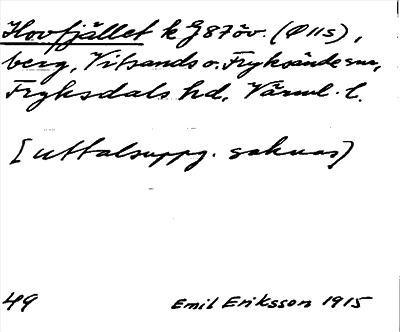 Hovfjället k G87öv. (Ø11s),
berg, Vitsands o. Fryksände snr,
Fryksdals hd, Värml. l.
[uttalsuppg. saknas]
49 Emil Eriksson 1915